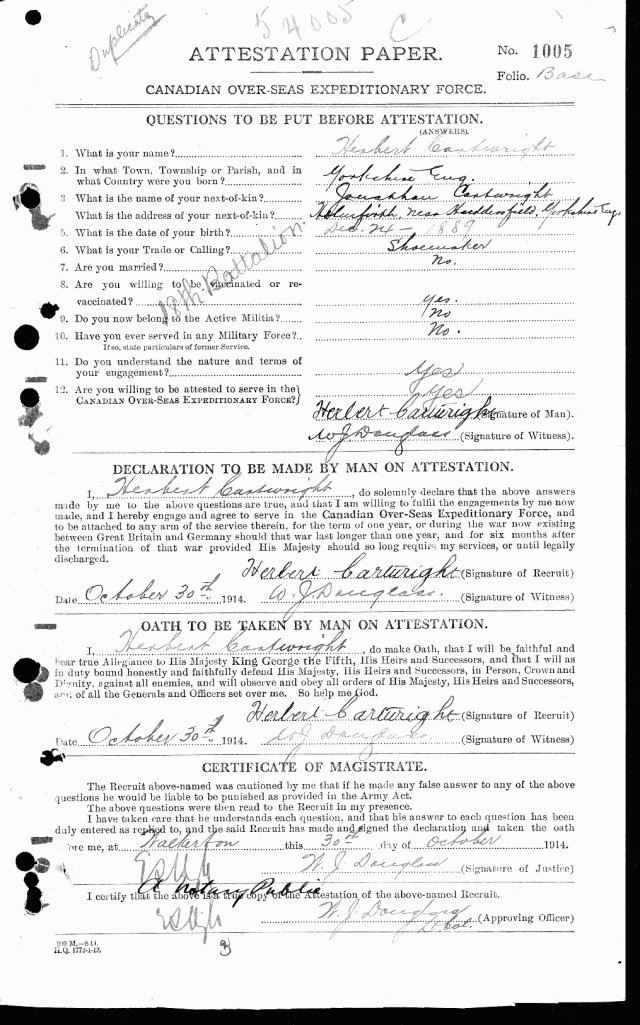 Duplicate
54005 C
ATTESTATION PAPER.
No. 1005
Folio. Base
CANADIAN OVER-SEAS EXPEDITIONARY FORCE.
QUESTIONS TO BE PUT BEFORE ATTESTATION.
(ANSWERS).
1. What is your name? Herbert Cartwright
2. In what Town, Township or Parish, and in
what Country were you born? Yorkshire Eng.
3 What is the name of your next-of-kin? Jonathan Cartwright
What is the address of your next-of-kin? Holmfirth, near Huddersfield, Yorkshire Eng.
5. What is the date of your birth? Dec. 24 - 1889
6. What is your Trade or Calling? Shoemaker
7. Are you married? No.
8. Are you willing to be vaccinated or re-
vaccinated? Yes.
9. Do you now belong to the Active Militia? No
10. Have you ever served in any Military Force?.. No.
If so, state particulars of former Service.
11. Do you understand the nature and terms of
your engagement? Yes
12. Are you willing to be attested to serve in the
CANADIAN OVER-SEAS EXPEDITIONARY FORCE? Yes
18th Battalion
Herbert Cartwright (Signature of Man).
W J Douglass (Signature of Witness).
DECLARATION TO BE MADE BY MAN ON ATTESTATION.
I, Herbert Cartwright, do solemnly declare that the above answers
made by me to the above questions are true, and that I am willing to fulfil the engagements by me now
made, and I hereby engage and agree to serve in the Canadian Over-Seas Expeditionary Force, and
to be attached to any arm of the service therein, for the term of one year, or during the war now existing
between Great Britain and Germany should that war last longer than one year, and for six months after
the termination of that war provided His Majesty should so long require my services, or until legally
discharged.
Herbert Cartwright (Signature of Recruit)
Date October 30th 1914. W. J. Douglass. (Signature of Witness)
OATH TO BE TAKEN BY MAN ON ATTESTATION.
I, Herbert Cartwright, do make Oath, that I will be faithful and
bear true Allegiance to His Majesty King George the Fifth, His Heirs and Successors, and that I will as
in duty bound honestly and faithfully defend His Majesty, His Heirs and Successors, in Person, Crown and
Dignity, against all enemies, and will observe and obey all orders of His Majesty, His Heirs and Successors,
and of all the Generals and Officers set over me. So help me God.
Herbert Cartwright (Signature of Recruit)
Date October 30th 1914. W J Douglass. (Signature of Witness)
CERTIFICATE OF MAGISTRATE.
The Recruit above-named was cautioned by me that if he made any false answer to any of the above
questions he would be liable to be punished as provided in the Army Act.
The above questions were then read to the Recruit in my presence.
I have taken care that he understands each question, and that his answer to each question has been
duly entered as replied to, and the said Recruit has made and signed the declaration and taken the oath
before me, at Walkerton this 30th day of October 1914.
W. J. Douglass (Signature of Justice)
A Notary Public
I certify that the above is a true copy of the Attestation of the above-named Recruit.
W. J. Douglass (Approving Officer)
Lt Col.
200 M.—8-14.
H.Q. 1772-1-13.